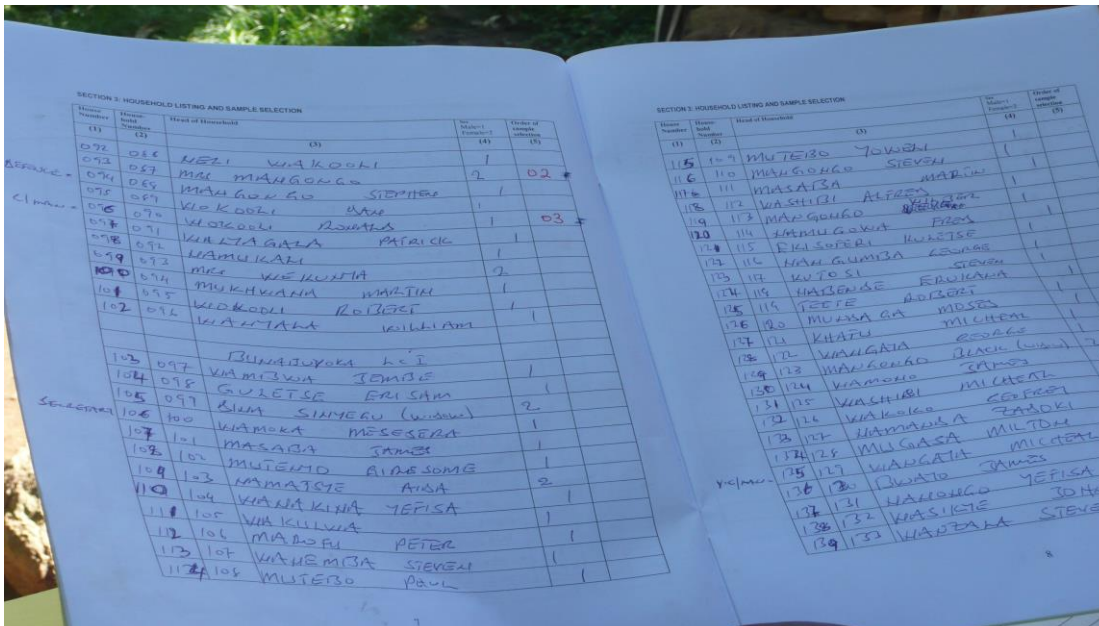 SECTION 3: HOUSEHOLD LISTING AND SAMPLE SELECTION
House Number Household Number Head of Household Sex Male=1 Female=2 Order of sample selection
(1) (2) (3) (4) (5)
092 086 NEZI WAKOOLI 1
093 087 MRS MANGONGO 2 02 *
094 088 MANGONGO STEPHEN 1
095 089 WOKOOLI SAM 1
C/MAN 096 090 WOKOOLI ROWANS 1 03 *
097 091 WALYAGALA PATRICK 1
098 092 NAMUKALI 1
099 093 MRS WEKUNYA 2
100 094 MUKHWANA MARTIN 1
101 095 WOKOOLI ROBERT 1
102 096 WANYALA WILLIAM 1
BUNABUYOKA LC I
103 097 WAMBWA JEMBE 1
104 098 GULETSE ERISAM 1
105 099 SINYEGU (widow) 2
SECRETARY 106 100 WAMOKA MESESERA 1
107 101 MASABA JAMES 1
108 102 1
109 103 NAMATSYE AIDA 2
110 104 WANAKINA YEFISA 1
111 105 WAKULWA 1
112 106 MADOFU PETER 1
113 107 WANEMBA STEVEN 1
114 108 MUTEBO PAUL 1
SECTION 3: HOUSEHOLD LISTING AND SAMPLE SELECTION
House Number Household Number Head of Household Sex Male=1 Female=2 Order of sample selection
(1) (2) (3) (4) (5)
115 109 MUTEBO YOWELI 1
116 110 MANGONGO STEVEN 1
111 MASABA MARTIN 1
118 112 WASHIBI ALFRED 1
119 113 MANGONGO
120 114 NAMUGOWA FRED 1
121 115 ERISOFERI KULETSE 1
122 116 NANGUMBA GEORGE 1
123 117 KUTOSI STEVEN 1
124 118 ERUKANA 1
125 119 TEETE ROBERT 1
126 120 MOSES 1
127 121 KHATU MICHEAL 1
128 122 WANGATA GEORGE 1
129 123 MANGONGO BLACK (widow) 2
130 124 WAMONO JAMES
131 125 WASHIBI MICHEAL
132 126 WAKOKO GEOFREY
133 127 NAMANSA ZADOKI
134 128 MUGASA MILTON
135 129 WANGATA MICHEAL
136 130 BWATO JAMES
137 131 NAMONGO YEFISA
138 132 WASIKYE
139 133 WANZALA STEVE
8